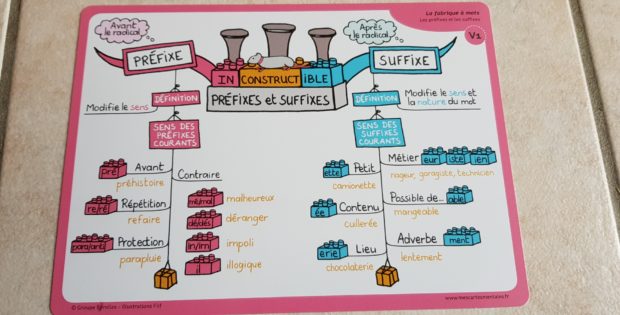 La fabrique à mots
Les préfixes et les suffixes
V1
Avant
le radical
PRÉFIXE
Après
le radical
SUFFIXE
IN CONSTRUCT IBLE
PRÉFIXES ET SUFFIXES
Modifie le sens
DÉFINITION
SENS DES
PRÉFIXES
COURANTS
pré Avant
préhistoire
re/ré Répétition
refaire
para/anti Protection
parapluie
Contraire
mal malheureux
dé/dés déranger
in/im impoli
il illogique
DÉFINITION
Modifie le sens et
la nature du mot
SENS DES
SUFFIXES
COURANTS
ette Petit
camionette
ée Contenu
cuillerée
erie Lieu
chocolaterie
Métier eur iste ien
nageur, garagiste, technicien
Possible de... able
mangeable
Adverbe ment
lentement
© - Illustrations Filf
www.mescartesmentales.fr